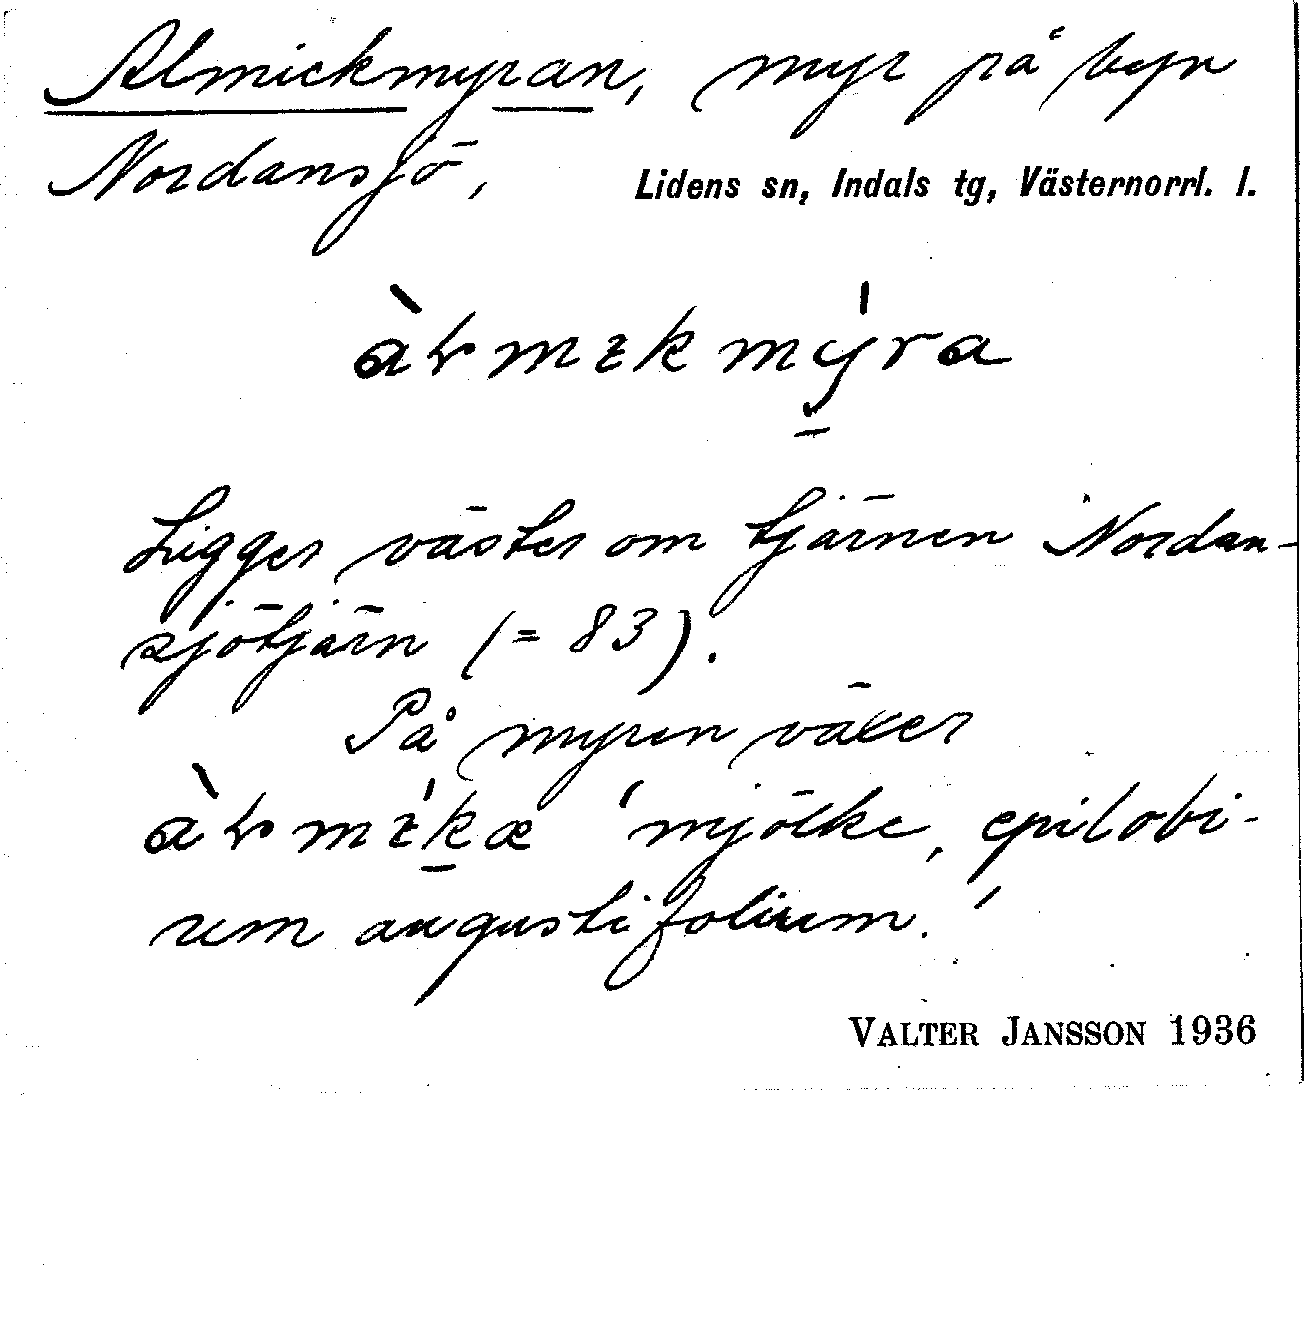 Almickmyran, myr på byn
Nordansjö, Lidens sn, Indals tg, Västernorrl. l.
Ligger väster om tjärnen Nordan-
sjötjärn (= 83).
På myren växer
'mjölke, epilobi-
um augustifolium.'
VALTER JANSSON 1936